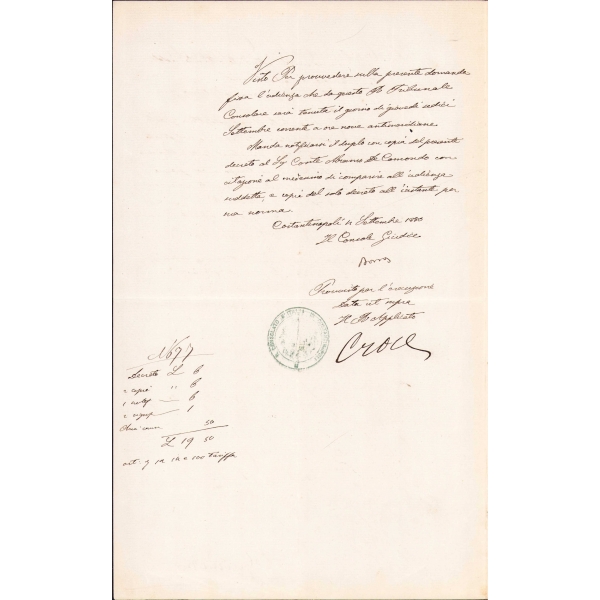 Visto Per provvedere sulla presente domanda
fissa l'udienza che da questo R. Tribunale
Consolare sarà tenuta il giorno di giovedì sedici
Settembre corrente a ore nove antimeridiane.
Manda notificarsi il duplo con copia del presente
decreto al Sig Conte Abramo De Camondo con
citazione al medesimo di comparire all'udienza
suddetta, e copia del solo decreto all'istante per
sua norma.
Costantinopoli Settembre 1880
Il Console Giudice
Provveduto per l'esecuzione
data ut supra
Il R Applicato
Croce
No 77
Decreto £ 6
2 copie " 6
1 notif 6
2 1
50
£ 19 50
art. 9 12 14 e 100 tariffa